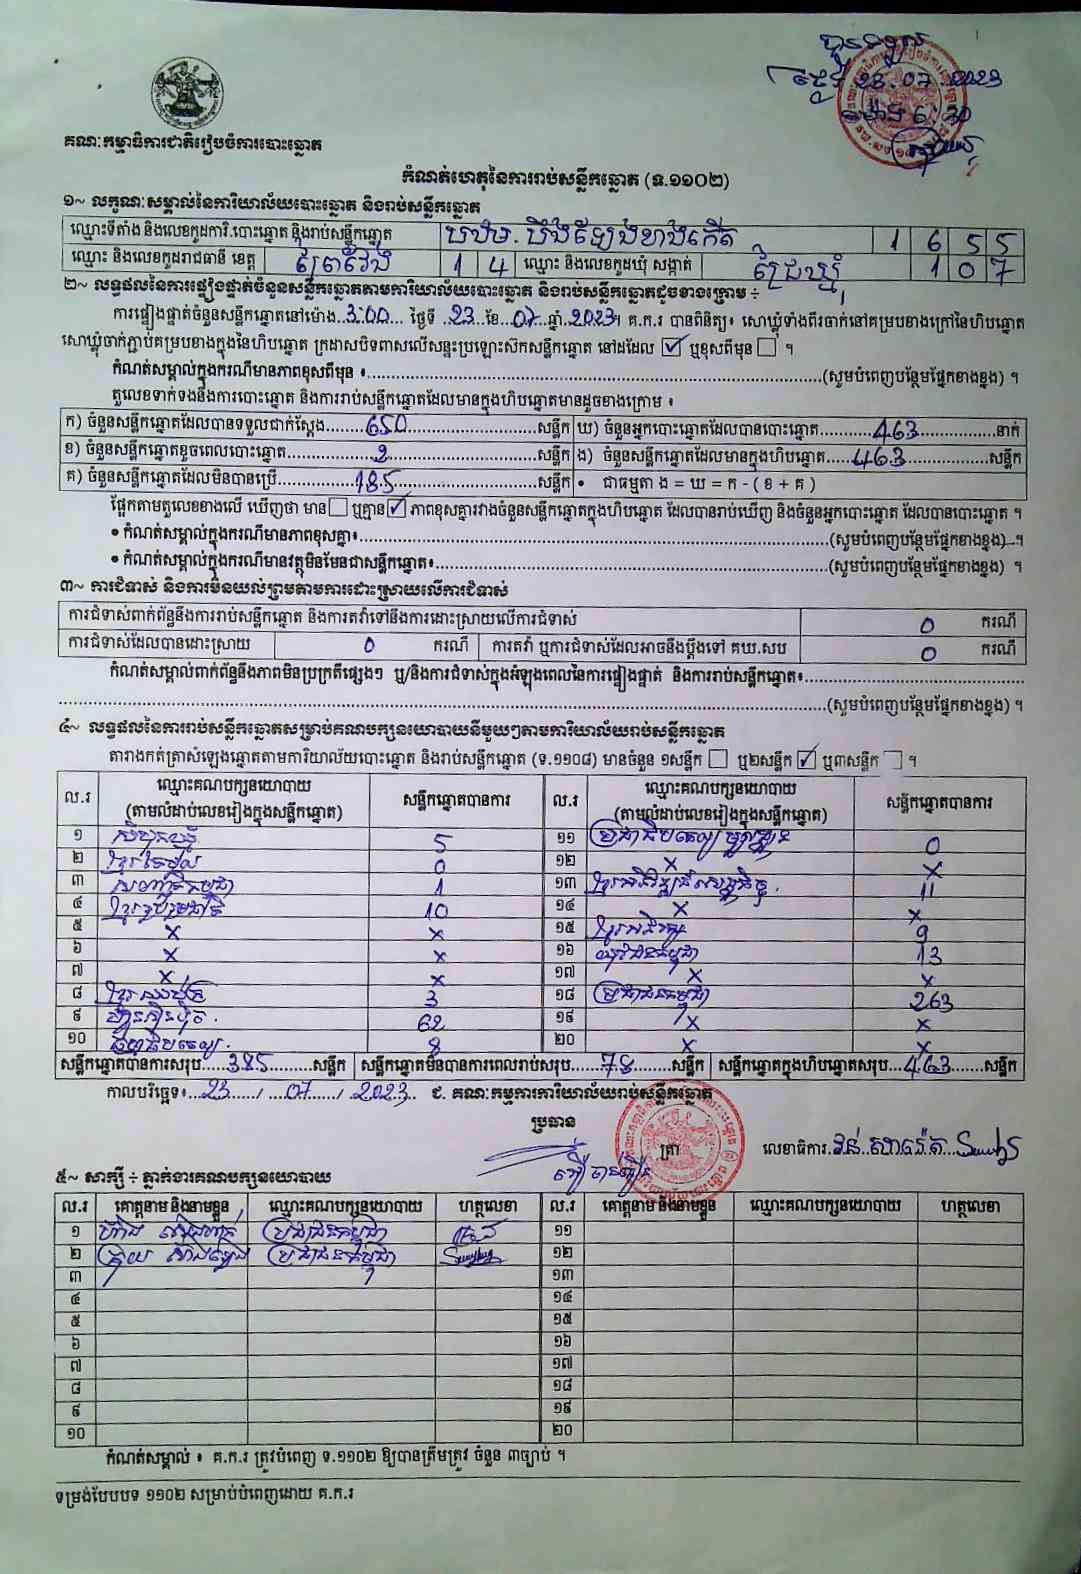 បានទទួល
ថ្ងៃទី 23.07.2023
ម៉ោង 6:30
គណៈកម្មាធិការជាតិរៀបចំការបោះឆ្នោត
កំណត់ហេតុនៃការរាប់សន្លឹកឆ្នោត (ទ.១១០២)
១~ លក្ខណៈសម្គាល់នៃការិយាល័យបោះឆ្នោត និងរាប់សន្លឹកឆ្នោត
ឈ្មោះទីតាំង និងលេខកូដការិ.បោះឆ្នោត និងរាប់សន្លឹកឆ្នោត បឋម. បឹងឡែងខាងកើត 1 6 5 5
ឈ្មោះ និងលេខកូដរាជធានី ខេត្ត ព្រៃវែង 1 4 ឈ្មោះ និងលេខកូដឃុំ សង្កាត់ ជ្រៃឃ្មុំ 1 0 7
២~ លទ្ធផលនៃការផ្ទៀងផ្ទាត់ចំនួនសន្លឹកឆ្នោតតាមការិយាល័យបោះឆ្នោត និងរាប់សន្លឹកឆ្នោតដូចខាងក្រោម ÷
ការផ្ទៀងផ្ទាត់ចំនួនសន្លឹកឆ្នោតនៅម៉ោង..3:00.... ថ្ងៃទី .23.ខែ.07...ឆ្នាំ.2023។ គ.ក.រ បានពិនិត្យ៖ សោឃ្លុំទាំងពីរចាក់នៅគម្របខាងក្រៅនៃហិបឆ្នោត
សោឃ្លុំចាក់ភ្ជាប់គម្របខាងក្នុងនៃហិបឆ្នោត ក្រដាសបិទពាសលើសន្ទះប្រឡោះស៊កសន្លឹកឆ្នោត នៅដដែល ☑ ឬខុសពីមុន ☐ ។
កំណត់សម្គាល់ក្នុងករណីមានភាពខុសពីមុន ៖........(សូមបំពេញបន្ថែមផ្នែកខាងខ្នង) ។
តួលេខទាក់ទងនឹងការបោះឆ្នោត និងការរាប់សន្លឹកឆ្នោតដែលមានក្នុងហិបឆ្នោតមានដូចខាងក្រោម ៖
ក) ចំនួនសន្លឹកឆ្នោតដែលបានទទួលជាក់ស្តែង........650........សន្លឹក ឃ) ចំនួនអ្នកបោះឆ្នោតដែលបានបោះឆ្នោត........463........នាក់
ខ) ចំនួនសន្លឹកឆ្នោតខូចពេលបោះឆ្នោត........2........សន្លឹក ង) ចំនួនសន្លឹកឆ្នោតដែលមានក្នុងហិបឆ្នោត........463........សន្លឹក
គ) ចំនួនសន្លឹកឆ្នោតដែលមិនបានប្រើ........185........សន្លឹក • ជាធម្មតា ង = ឃ = ក - ( ខ + គ )
ផ្អែកតាមតួលេខខាងលើ ឃើញថា មាន ☐ ឬគ្មាន ☑ ភាពខុសគ្នារវាងចំនួនសន្លឹកឆ្នោតក្នុងហិបឆ្នោត ដែលបានរាប់ឃើញ និងចំនួនអ្នកបោះឆ្នោត ដែលបានបោះឆ្នោត ។
• កំណត់សម្គាល់ក្នុងករណីមានភាពខុសគ្នា៖........(សូមបំពេញបន្ថែមផ្នែកខាងខ្នង) ។
• កំណត់សម្គាល់ក្នុងករណីមានវត្ថុមិនមែនជាសន្លឹកឆ្នោត៖........(សូមបំពេញបន្ថែមផ្នែកខាងខ្នង) ។
៣~ ការជំទាស់ និងការមិនយល់ព្រមតាមការដោះស្រាយលើការជំទាស់
ការជំទាស់ពាក់ព័ន្ធនឹងការរាប់សន្លឹកឆ្នោត និងការតវ៉ាទៅនឹងការដោះស្រាយលើការជំទាស់ 0 ករណី
ការជំទាស់ដែលបានដោះស្រាយ 0 ករណី ការតវ៉ា ឬការជំទាស់ដែលអាចនឹងប្តឹងទៅ គឃ.សប 0 ករណី
កំណត់សម្គាល់ពាក់ព័ន្ធនឹងភាពមិនប្រក្រតីផ្សេងៗ ឬ/និងការជំទាស់ក្នុងអំឡុងពេលនៃការផ្ទៀងផ្ទាត់ និងការរាប់សន្លឹកឆ្នោត៖........
........(សូមបំពេញបន្ថែមផ្នែកខាងខ្នង) ។
៤~ លទ្ធផលនៃការរាប់សន្លឹកឆ្នោតសម្រាប់គណបក្សនយោបាយនីមួយៗតាមការិយាល័យរាប់សន្លឹកឆ្នោត
តារាងកត់ត្រាសំឡេងឆ្នោតតាមការិយាល័យបោះឆ្នោត និងរាប់សន្លឹកឆ្នោត (ទ.១១០៨) មានចំនួន ១សន្លឹក ☐ ឬ២សន្លឹក ☑ ឬ៣សន្លឹក ☐ ។
ល.រ ឈ្មោះគណបក្សនយោបាយ (តាមលំដាប់លេខរៀងក្នុងសន្លឹកឆ្នោត) សន្លឹកឆ្នោតបានការ ល.រ ឈ្មោះគណបក្សនយោបាយ (តាមលំដាប់លេខរៀងក្នុងសន្លឹកឆ្នោត) សន្លឹកឆ្នោតបានការ
១ 5 ១១ ប្រជាធិបតេយ្យមូលដ្ឋាន 0
២ ខ្មែរតែមួយ 0 ១២ x x
៣ សញ្ជាតិកម្ពុជា 1 ១៣ ខ្មែរអភិវឌ្ឍន៍សេដ្ឋកិច្ច 11
៤ ខ្មែររួបរួមជាតិ 10 ១៤ x x
៥ x x ១៥ ខ្មែរអភិរក្ស 9
៦ x x ១៦ យុវជនកម្ពុជា 13
៧ x x ១៧ x x
៨ 3 ១៨ ប្រជាជនកម្ពុជា 263
៩ ហ៊្វុនស៊ិនប៉ិច 62 ១៩ x x
១០ 8 ២០ x x
សន្លឹកឆ្នោតបានការសរុប.....385........សន្លឹក សន្លឹកឆ្នោតមិនបានការពេលរាប់សរុប.....78.......សន្លឹក សន្លឹកឆ្នោតក្នុងហិបឆ្នោតសរុប...463.......សន្លឹក
កាលបរិច្ឆេទ៖..23....../...07...../.2023.. ជ. គណៈកម្មការការិយាល័យរាប់សន្លឹកឆ្នោត
ប្រធាន
ត្រា លេខាធិការ
៥~ សាក្សី ÷ ភ្នាក់ងារគណបក្សនយោបាយ
ល.រ គោត្តនាម និងនាមខ្លួន ឈ្មោះគណបក្សនយោបាយ ហត្ថលេខា ល.រ គោត្តនាម និងនាមខ្លួន ឈ្មោះគណបក្សនយោបាយ ហត្ថលេខា
១ ប្រជាជនកម្ពុជា ១១
២ ប្រជាជនកម្ពុជា ១២
៣ ១៣
៤ ១៤
៥ ១៥
៦ ១៦
៧ ១៧
៨ ១៨
៩ ១៩
១០ ២០
កំណត់សម្គាល់ ៖ គ.ក.រ ត្រូវបំពេញ ទ.១១០២ ឱ្យបានត្រឹមត្រូវ ចំនួន ៣ច្បាប់ ។
ទម្រង់បែបបទ ១១០២ សម្រាប់បំពេញដោយ គ.ក.រ